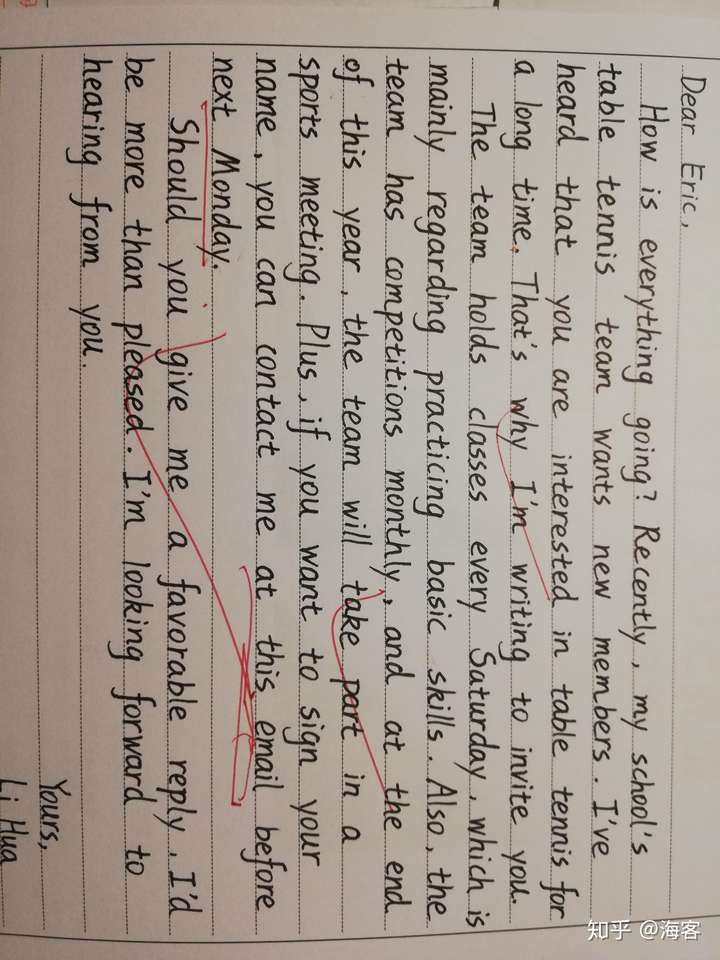 Dear Eric,
How is everything going? Recently, my school's
table tennis team wants new members. I've
heard that you are interested in table tennis for
a long time. That's why I'm writing to invite you.
The team holds classes every Saturday, which is
mainly regarding practicing basic skills. Also, the
team has competitions monthly, and at the end
of this year, the team will take part in a
sports meeting. Plus, if you want to sign your
name, you can contact me at this email before
next Monday.
Should you give me a favorable reply, I'd
be more than pleased. I'm looking forward to
hearing from you.
Yours,
Li Hua
知乎 @海客